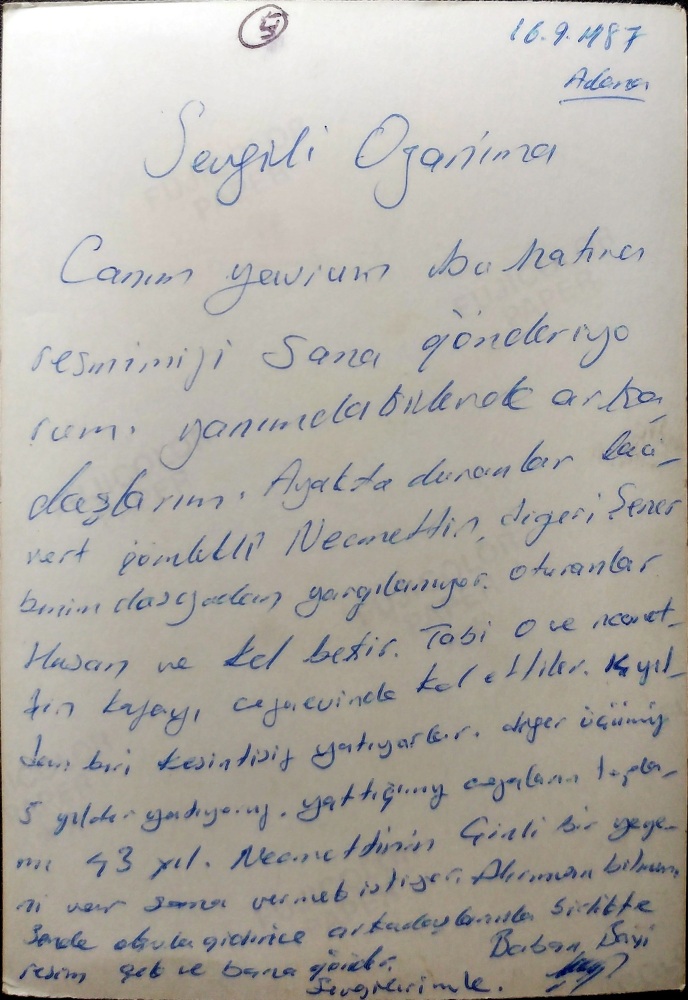 5
16.9.1987
Adana
Sevgili Ozanıma
Canım yavrum bu hatıra
resmimizi sana gönderiyo
rum. yanımdakilerde arka
daşlarım. Ayakta duranlar laci-
vert gömlekli Necmettin, digeri Şener
benim dosyadan yargılanıyor. oturanlar
Hasan ve kel bekir. Tabi o ve necmet-
tin kafayı cezaevinde kel ettiler. yıl-
dan biri kesintisiz yatıyorlar. diger üçümüz
5 yıldır yatıyoruz. yattığımız cezaların topla-
mı 43 yıl. Necmettinin Çinli bir yeğe-
ni var sana vermek istiyor.
Sende okula gidince arkadaşlarınla birlikte
resim çek ve bana gönder. Baban
Sevgilerimle.